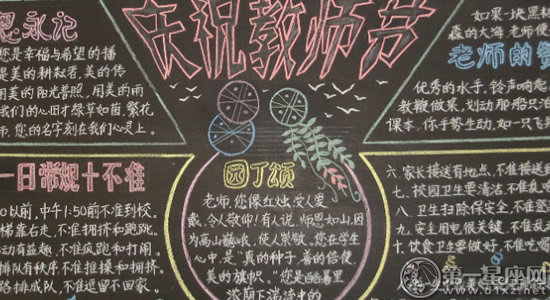 庆祝教师节
恩永记
您是幸福与希望的播
是美的耕耘者，美的传
用美的阳光普照，用美的雨
我们的心田才绿草如茵，繁花
师，您的名字刻在我们心灵上。
如果一块黑板
淼的大海，老师便
老师的赞
优秀的水手，铃声响起
教鞭做桨，划动那船只泊
课本，你手势生动，如一只飞
一日常规十不准
0以前，中午1:50前不准到校。
梯靠右走，不准拥挤和跑跳。
动有益趣，不准疯跑和打闹。
排队有秩序，不准推搡和拥挤。
路排成队，不准迟留不回家。
园丁颂
老师，您像红烛受人爱
戴，令人敬仰！有人说，师恩如山，因
为高山巍峨，使人崇敬，您在学生
心中，是"真的种子，善的信使，
美的旗帜。"您是酷暑里
浓荫下湍流中的
六、家长接送有地点，不准
七、校园卫生要清洁，不准乱
八、卫生扫除保安全，不准登
九、安全用电很关键，不准乱
十、饮食卫生要做好，不准吃零
第一星座网